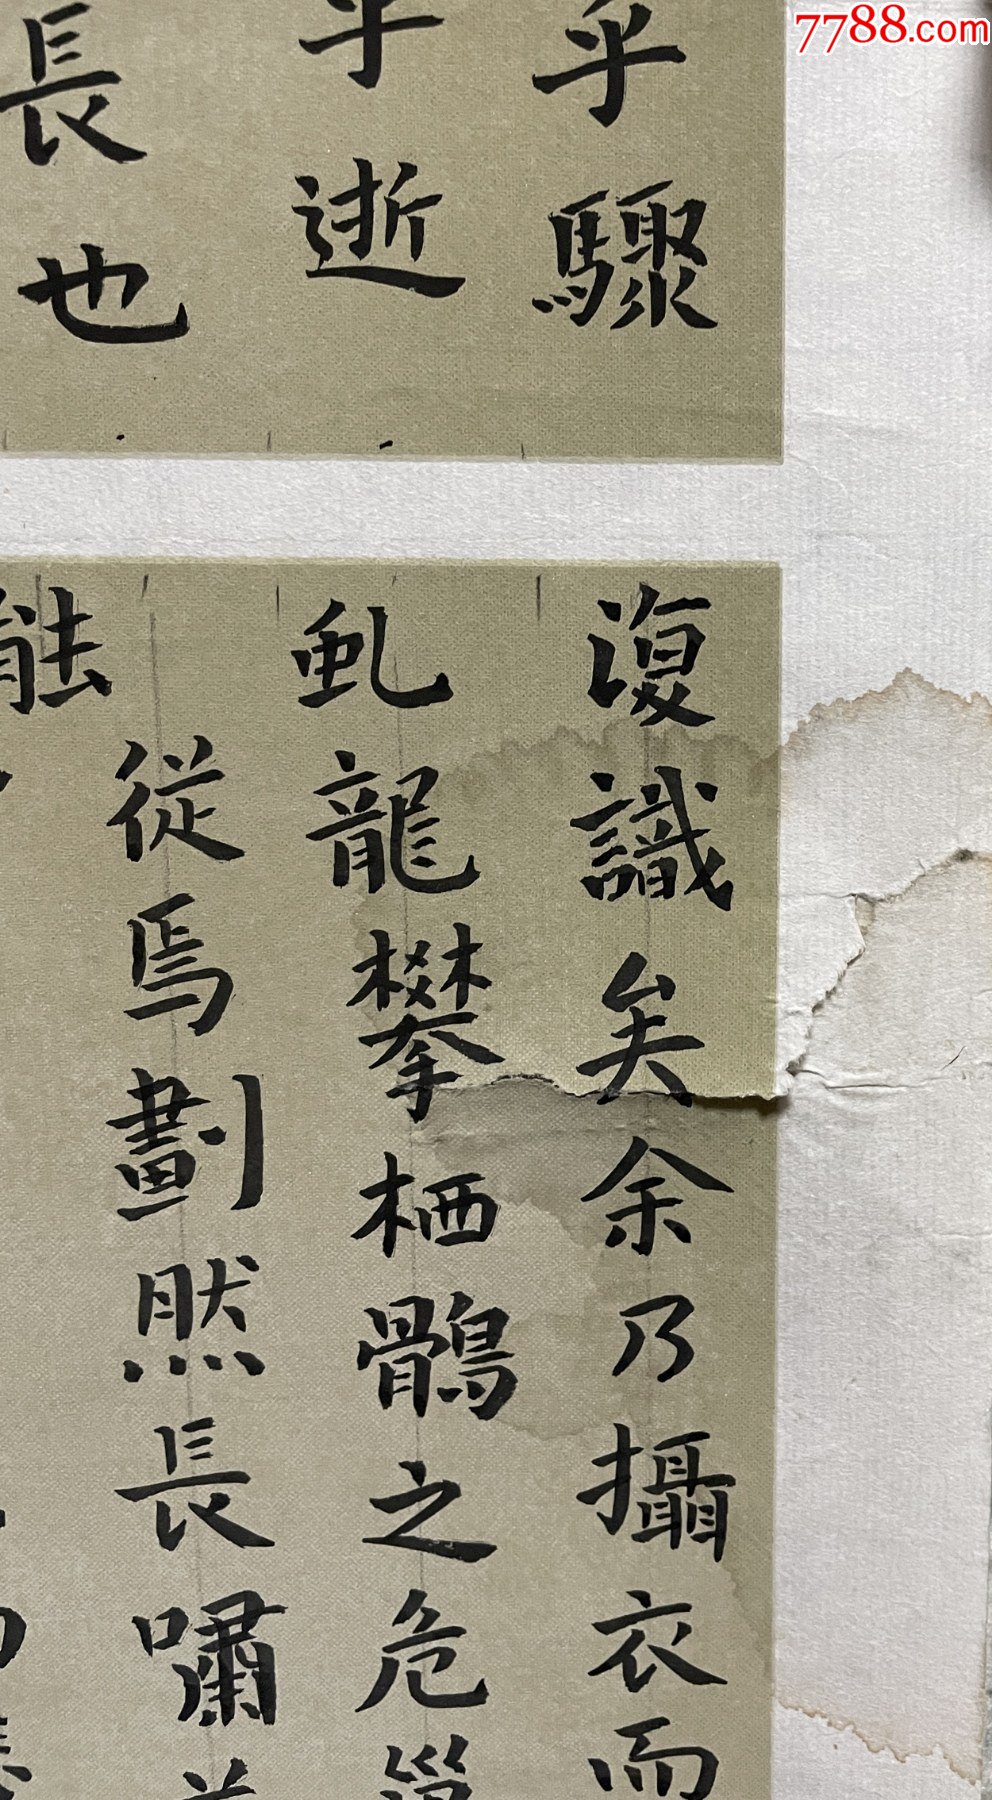 7788.com
乎驟
乎逝
長也
復識矣余乃攝衣而
虬龍攀栖鶻之危巢
從焉劃然長嘯草
能